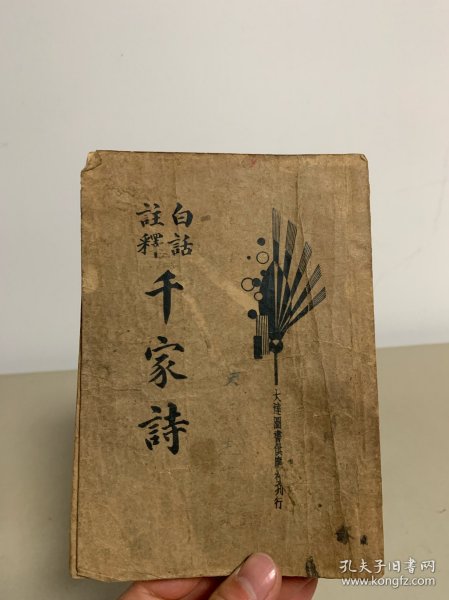 白話
註釋
千家詩
大達圖書供應社刊行
孔夫子旧书网
www.kongfz.com